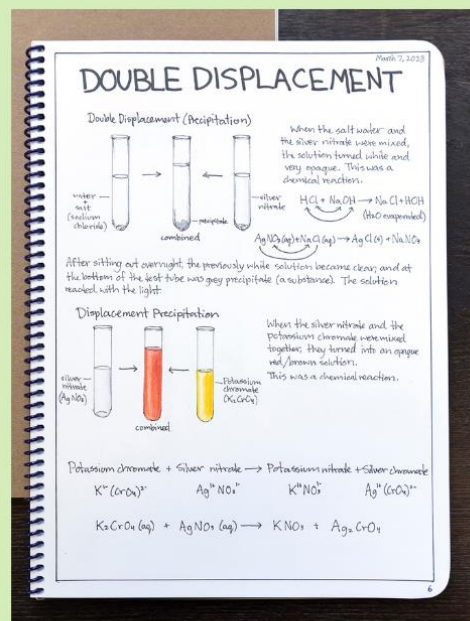 March 7, 2023
DOUBLE DISPLACEMENT
Double Displacement (Precipitation)
water
+
salt
(sodium
chloride)
combined
precipitate
silver
nitrate
When the salt water and
the silver nitrate were mixed,
the solution turned white and
very opaque. This was a
chemical reaction.
HCl + NaOH → NaCl + HOH
(H₂O evaporated)
AgNO₃(aq) + NaCl(aq) → AgCl(s) + NaNO₃
After sitting out overnight, the previously white solution became clear, and at
the bottom of the test tube was grey precipitate (a substance). The solution
reacted with the light.
Displacement Precipitation
silver
nitrate
(AgNO₃)
combined
Potassium
chromate
(K₂CrO₄)
When the silver nitrate and the
potassium chromate were mixed
together, they turned into an opaque
red/brown solution.
This was a chemical reaction.
Potassium chromate + Silver nitrate → Potassium nitrate + Silver chromate
K¹⁺ (CrO₄)²⁻ Ag¹⁺ NO₃¹⁻ K¹⁺ NO₃¹⁻ Ag¹⁺ (CrO₄)²⁻
K₂CrO₄ (aq) + AgNO₃ (aq) → KNO₃ + Ag₂CrO₄
6